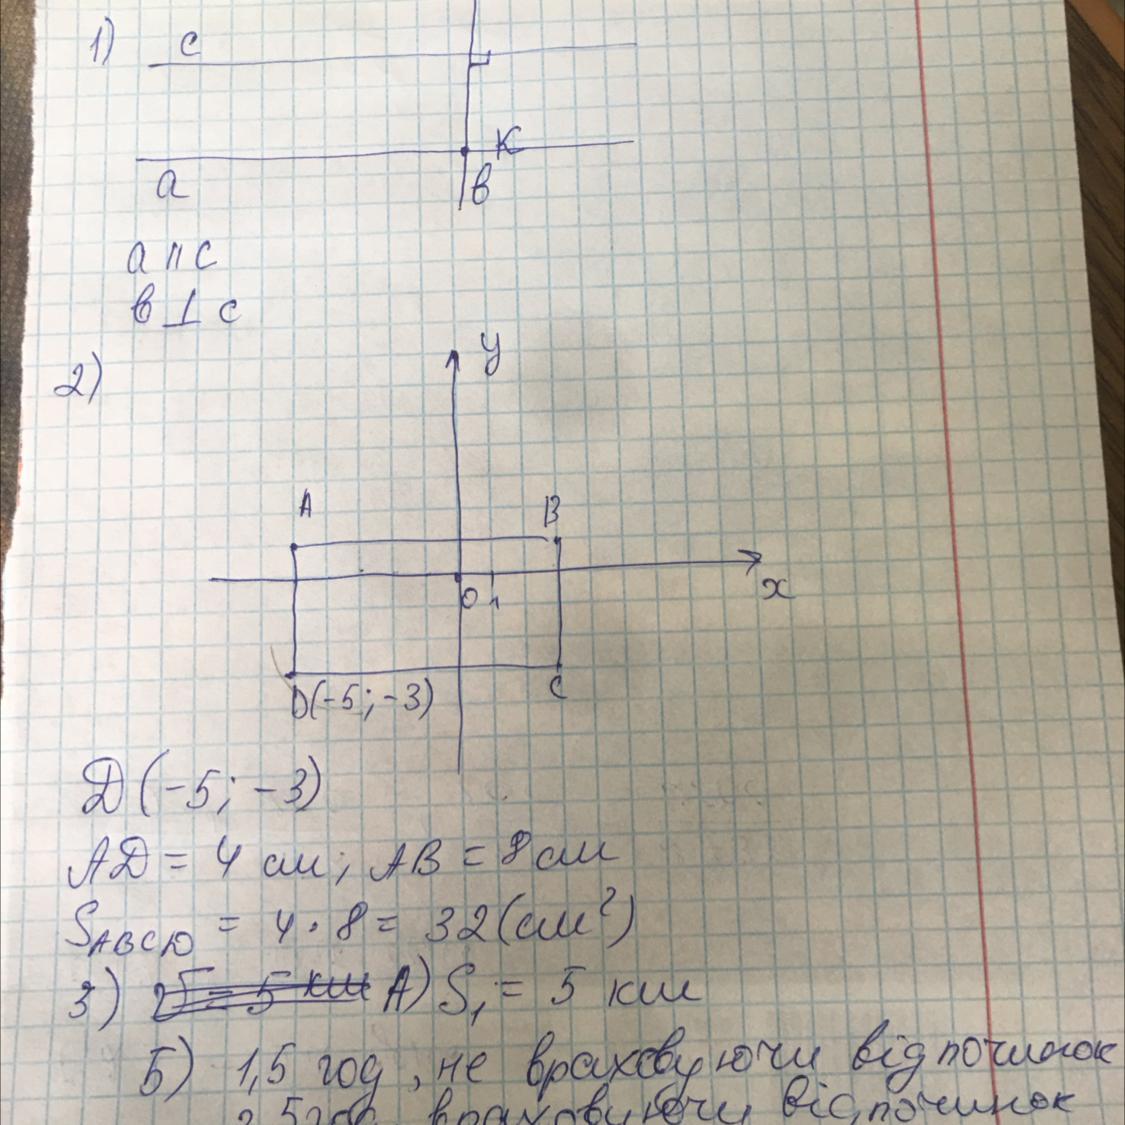 1) c
K
a в
a || c
в ⊥ c
2) y
A B
0 1 x
D(-5; -3) C
D (-5; -3)
AD = 4 см; AB = 8 см
S ABCD = 4 · 8 = 32 (см²)
3) А) S₁ = 5 км
Б) 1,5 год, не враховуючи відпочинок
2,5 год, враховуючи відпочинок